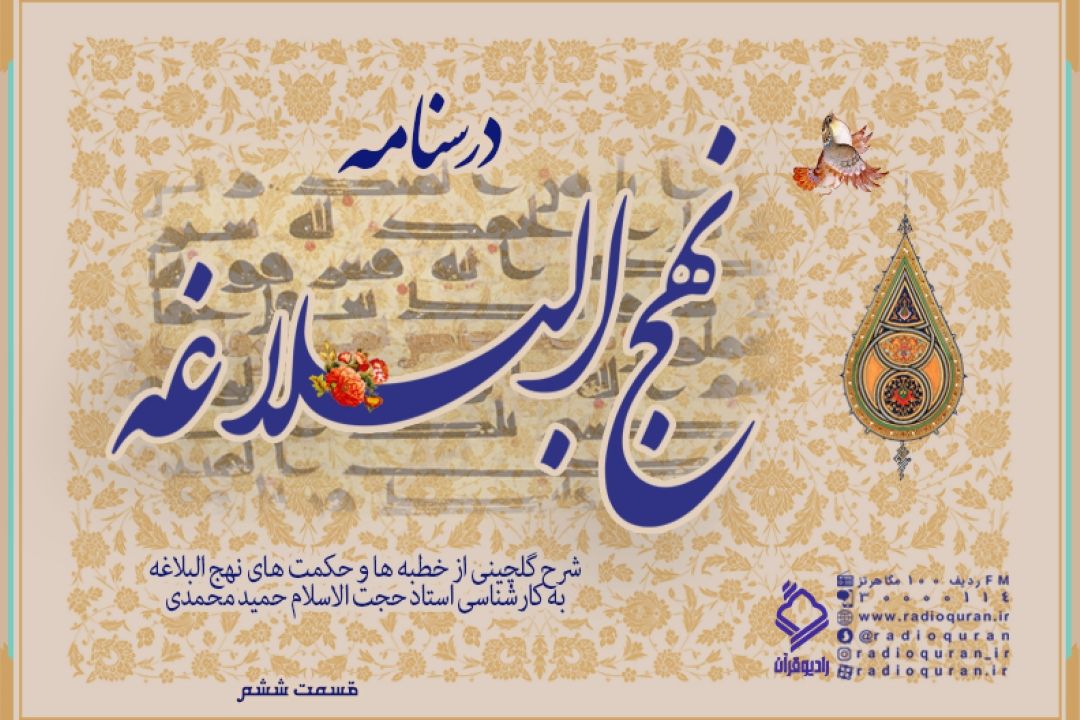 درسنامه
نهج البلاغه
شرح گلچینی از خطبه ها و حکمت های نهج البلاغه
به کارشناسی استاد حجت الاسلام حمید محمدی
قسمت ششم
رادیو قرآن
FM ردیف ۱۰۰ مگاهرتز
۳۰۰۰۰۱۱۴
www.radioquran.ir
@radioquran
radioquran_ir
radioquran.ir